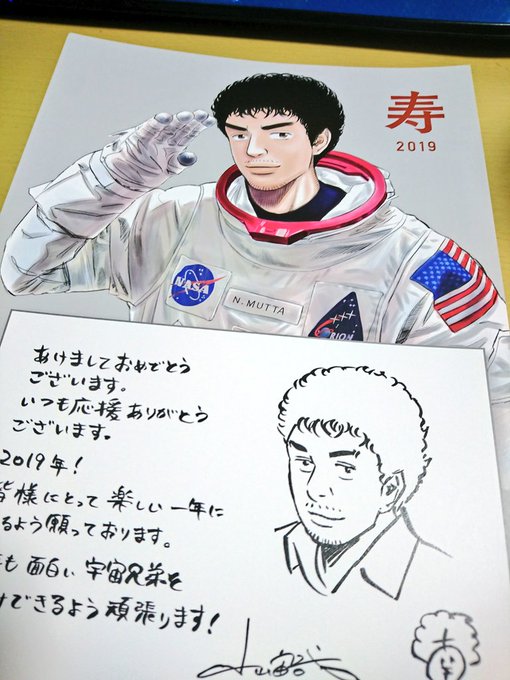 寿
2019
NASA
N. MUTTA
RION
あけましておめでとう
ございます。
いつも応援ありがとう
ございます。
2019年!
皆様にとって楽しい一年に
るよう願っております。
も面白い宇宙兄弟を
できるよう頑張ります!